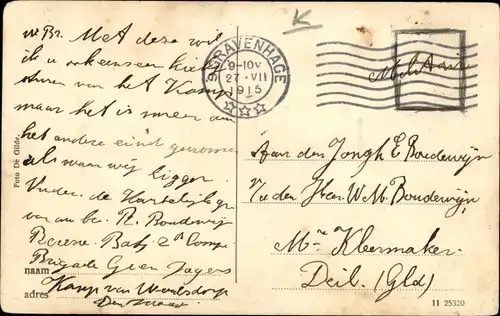 W. Br. Met deze wil
ik u ook eens een kiekje
sturen van het Kamp
maar het is meer aan
het andere eind genomen
als waar wij liggen.
Verder de Hartelijke gr
van uw br. R. Boudewijn
Reserve. Bat. 2e Comp
Brigade Gren Jagers
naam
Kamp van
adres
Foto De Gilde.
K
'S GRAVENHAGE
9-10V
27·VII
1915
Militair
Aan den Jongh E Boudewijn
p/a den Heer. W. M. Boudewijn
Mr Kleermaker
Deil. (Gld)
11 25320